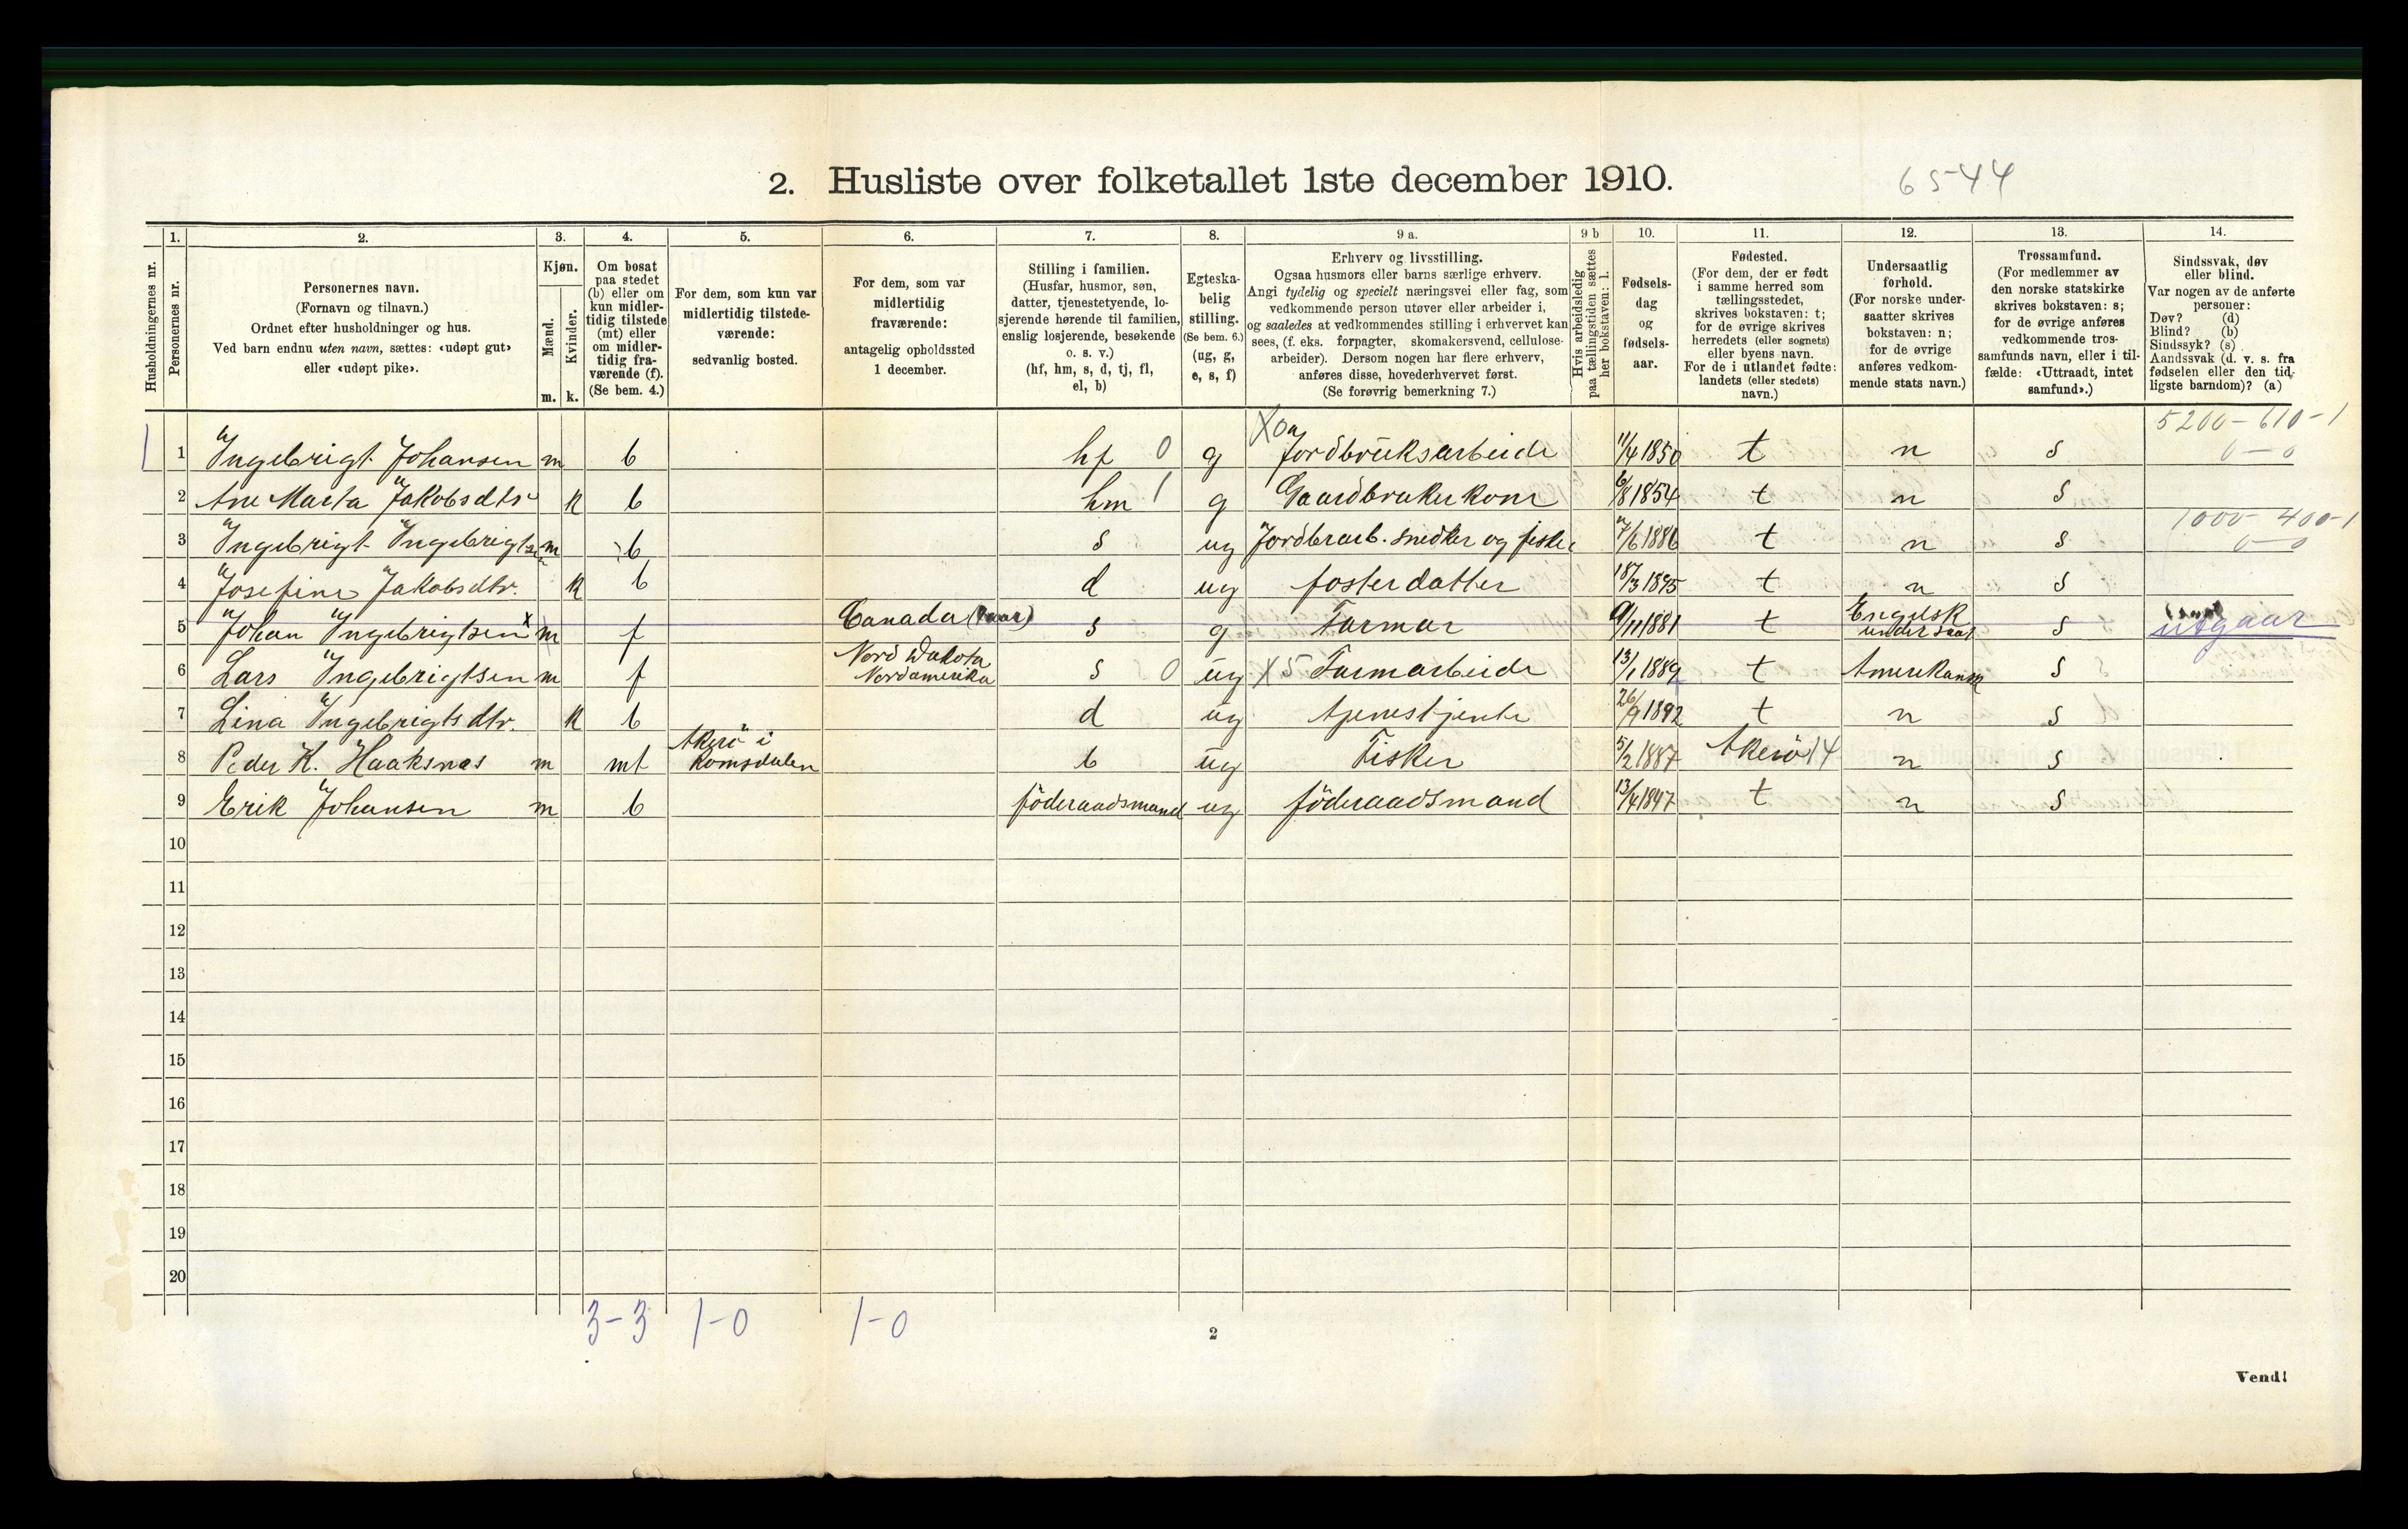 2. Husliste over folketallet 1ste december 1910.
65-44
Husholdningernes nr.
1.
Personernes nr.
2.
Personernes navn.
(Fornavn og tilnavn.)
Ordnet efter husholdninger og hus.
Ved barn endnu uten navn, sættes: «udøpt gut»
eller «udøpt pike».
3.
Kjøn.
Mænd.
Kvinder.
m. k.
4.
Om bosat
paa stedet
(b) eller om
kun midler-
tidig tilstede
(mt) eller
om midler-
tidig fra-
værende (f).
(Se bem. 4.)
5.
For dem, som kun var
midlertidig tilstede-
værende:
sedvanlig bosted.
6.
For dem, som var
midlertidig
fraværende:
antagelig opholdssted
1 december.
7.
Stilling i familien.
(Husfar, husmor, søn,
datter, tjenestetyende, lo-
sjerende hørende til familien,
enslig losjerende, besøkende
o. s. v.)
(hf, hm, s, d, tj, fl,
el, b)
8.
Egteska-
belig
stilling.
(Se bem. 6.)
(ug, g,
e, s, f)
9 a.
Erhverv og livsstilling.
Ogsaa husmors eller barns særlige erhverv.
Angi tydelig og specielt næringsvei eller fag, som
vedkommende person utøver eller arbeider i,
og saaledes at vedkommendes stilling i erhvervet kan
sees, (f. eks. forpagter, skomakersvend, cellulose-
arbeider). Dersom nogen har flere erhverv,
anføres disse, hovederhvervet først.
(Se forøvrig bemerkning 7.)
9 b
Hvis arbeidsledig
paa tællingstiden sættes
her bokstaven: l.
10.
Fødsels-
dag
og
fødsels-
aar.
11.
Fødested.
(For dem, der er født
i samme herred som
tællingsstedet,
skrives bokstaven: t;
for de øvrige skrives
herredets (eller sognets)
eller byens navn.
For de i utlandet fødte:
landets (eller stedets)
navn.)
12.
Undersaatlig
forhold.
(For norske under-
saatter skrives
bokstaven: n;
for de øvrige
anføres vedkom-
mende stats navn.)
13.
Trossamfund.
(For medlemmer av
den norske statskirke
skrives bokstaven: s;
for de øvrige anføres
vedkommende tros-
samfunds navn, eller i til-
fælde: «Uttraadt, intet
samfund».)
14.
Sindssvak, døv
eller blind.
Var nogen av de anførte
personer:
Døv? (d)
Blind? (b)
Sindssyk? (s)
Aandssvak (d. v. s. fra
fødselen eller den tid-
ligste barndom)? (a)
5200-610-1
1 1 Ingebrigt Johansen m b hf 0 g X0a Jordbruksarbeide 11/4 1850 t n s 0-0
2 Ane Marta Jakobsdtr k b hm 1 g Gaardbrukerkone 6/8 1854 t n s
1000-400-1
3 Ingebrigt Ingebrigtsen m b s ug Jordbrarb. snedker og fisker 7/6 1886 t n s 0-0
4 Josefine Jakobsdtr. k b d ug fosterdatter 18/3 1895 t n s
5 Johan Ingebrigtsen x m f Canada s g Farmar 9/11 1881 t Engelsk undersaat s utgaar
6 Lars Ingebrigtsen m f Nord Dakota Nordamerika s 0 ug X5 Farmarbeide 13/1 1889 t Amerikansk s
7 Lina Ingebrigtsdtr. k b d ug tjenestjente 26/9 1892 t n s
8 Peder K. Haaksnes m mt Akerö i Romsdalen b ug Fisker 5/2 1887 Akerö 14 n s
9 Erik Johansen m b föderaadsmand ug föderaadsmand 13/4 1847 t n s
10
11
12
13
14
15
16
17
18
19
20
3-3 1-0 1-0
2
Vend!